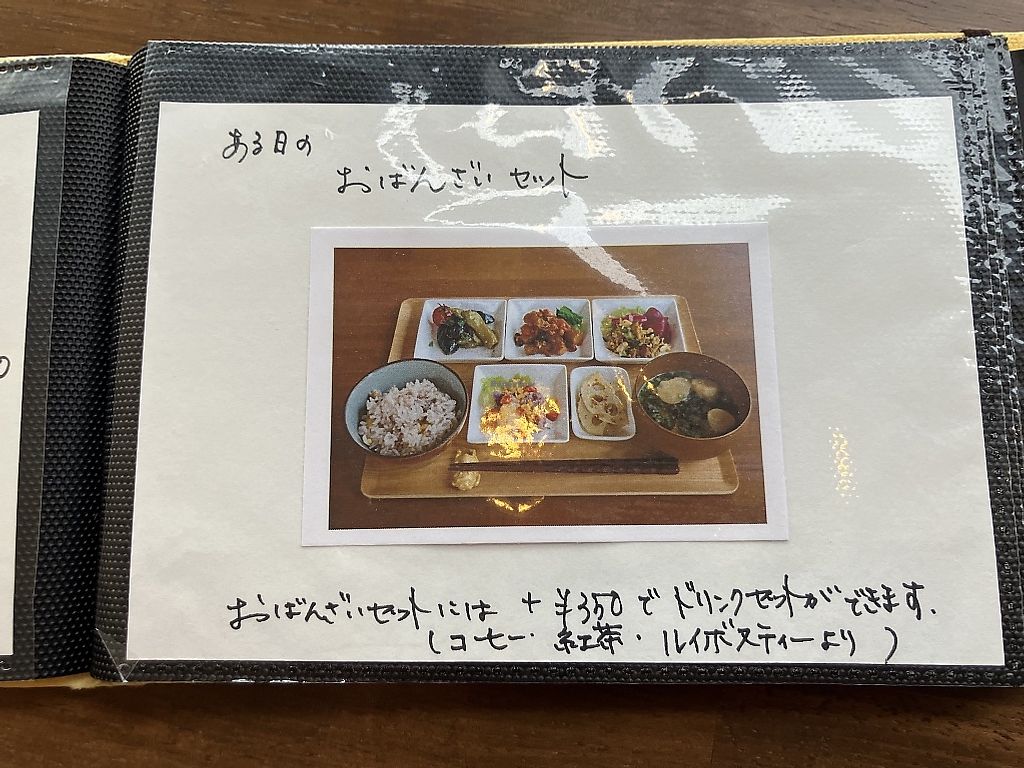 ある日の
おばんざいセット
おばんざいセットには + ¥350 で ドリンクセットができます.
(コーヒー・紅茶・ルイボスティーより)